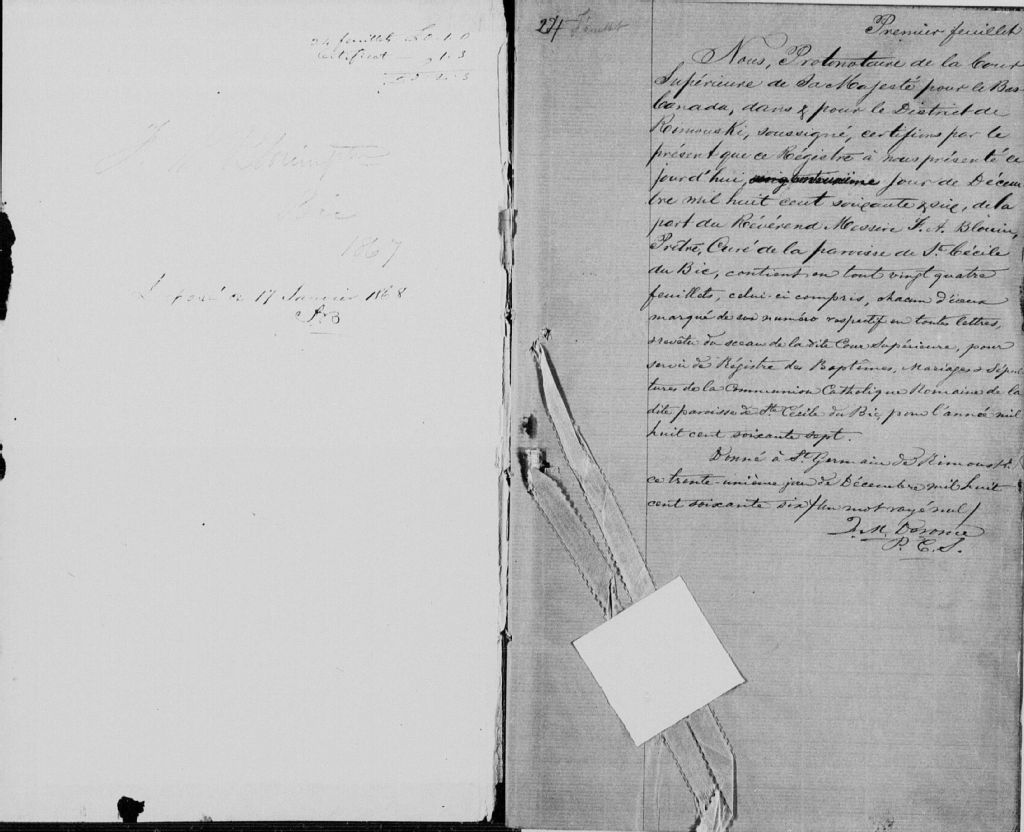 24 feuillets £0.1.0
Certificat — " 1.3
1867
Déposé ce 17 Janvier 1868
24 feuillet
Premier feuillet
Nous, Protonotaire de la Cour
Supérieure de Sa Majesté pour le Bas
Canada, dans & pour le District de
Rimouski, soussigné, certifions par le
présent que ce Régistre à nous présenté ce
jourd'hui, jour de Décem
bre mil huit cent soixante & six, de la
part du Révérend Messire F. A. Blouin,
Prêtre, Curé de la paroisse de Ste Cécile
du Bic, contient en tout vingt quatre
feuillets, celui-ci compris, chacun d'iceux
marqué de son numéro respectif en toutes lettres,
& revêtu du sceau de la dite Cour Supérieure, pour
servir de Régistre des Baptêmes, Mariages & Sépul
tures de la Communion Catholique Romaine de la
dite paroisse de Ste Cécile du Bic, pour l'année mil
huit cent soixante sept.
Donné à St Germain de Rimouski
ce trente-unième jour de Décembre mil huit
cent soixante six / Un mot rayé nul /
P. C. S.